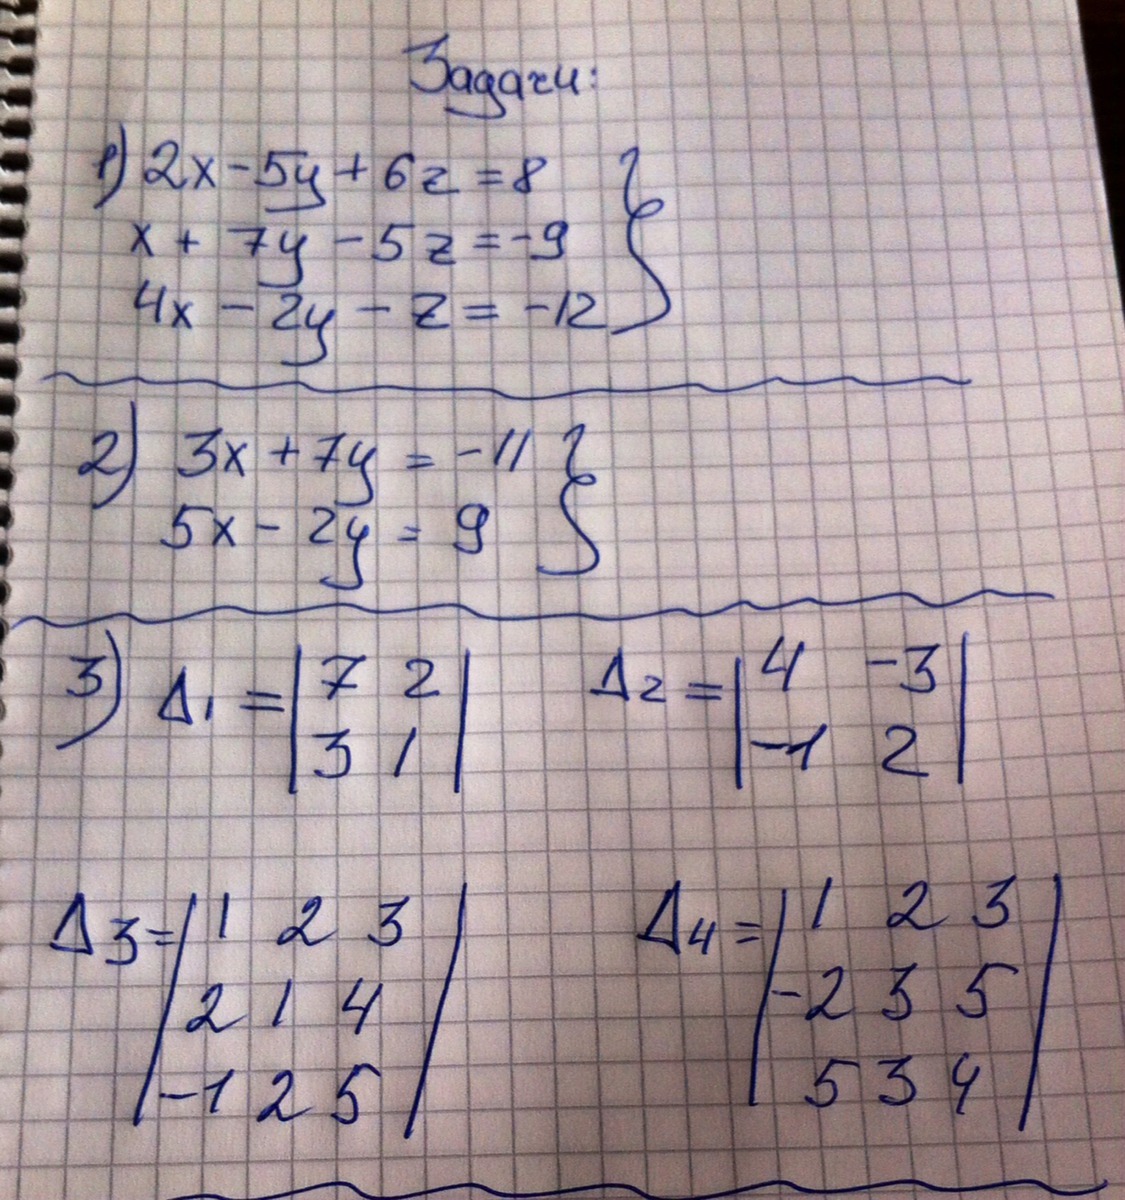 Задачи:
1) 2x - 5y + 6z = 8
x + 7y - 5z = -9
4x - 2y - z = -12
2) 3x + 7y = -11
5x - 2y = 9
3) Δ1 = |7 2| Δ2 = |4 -3|
|3 1| |-1 2|
Δ3 = |1 2 3| Δ4 = |1 2 3|
|2 1 4| |-2 3 5|
|-1 2 5| |5 3 4|